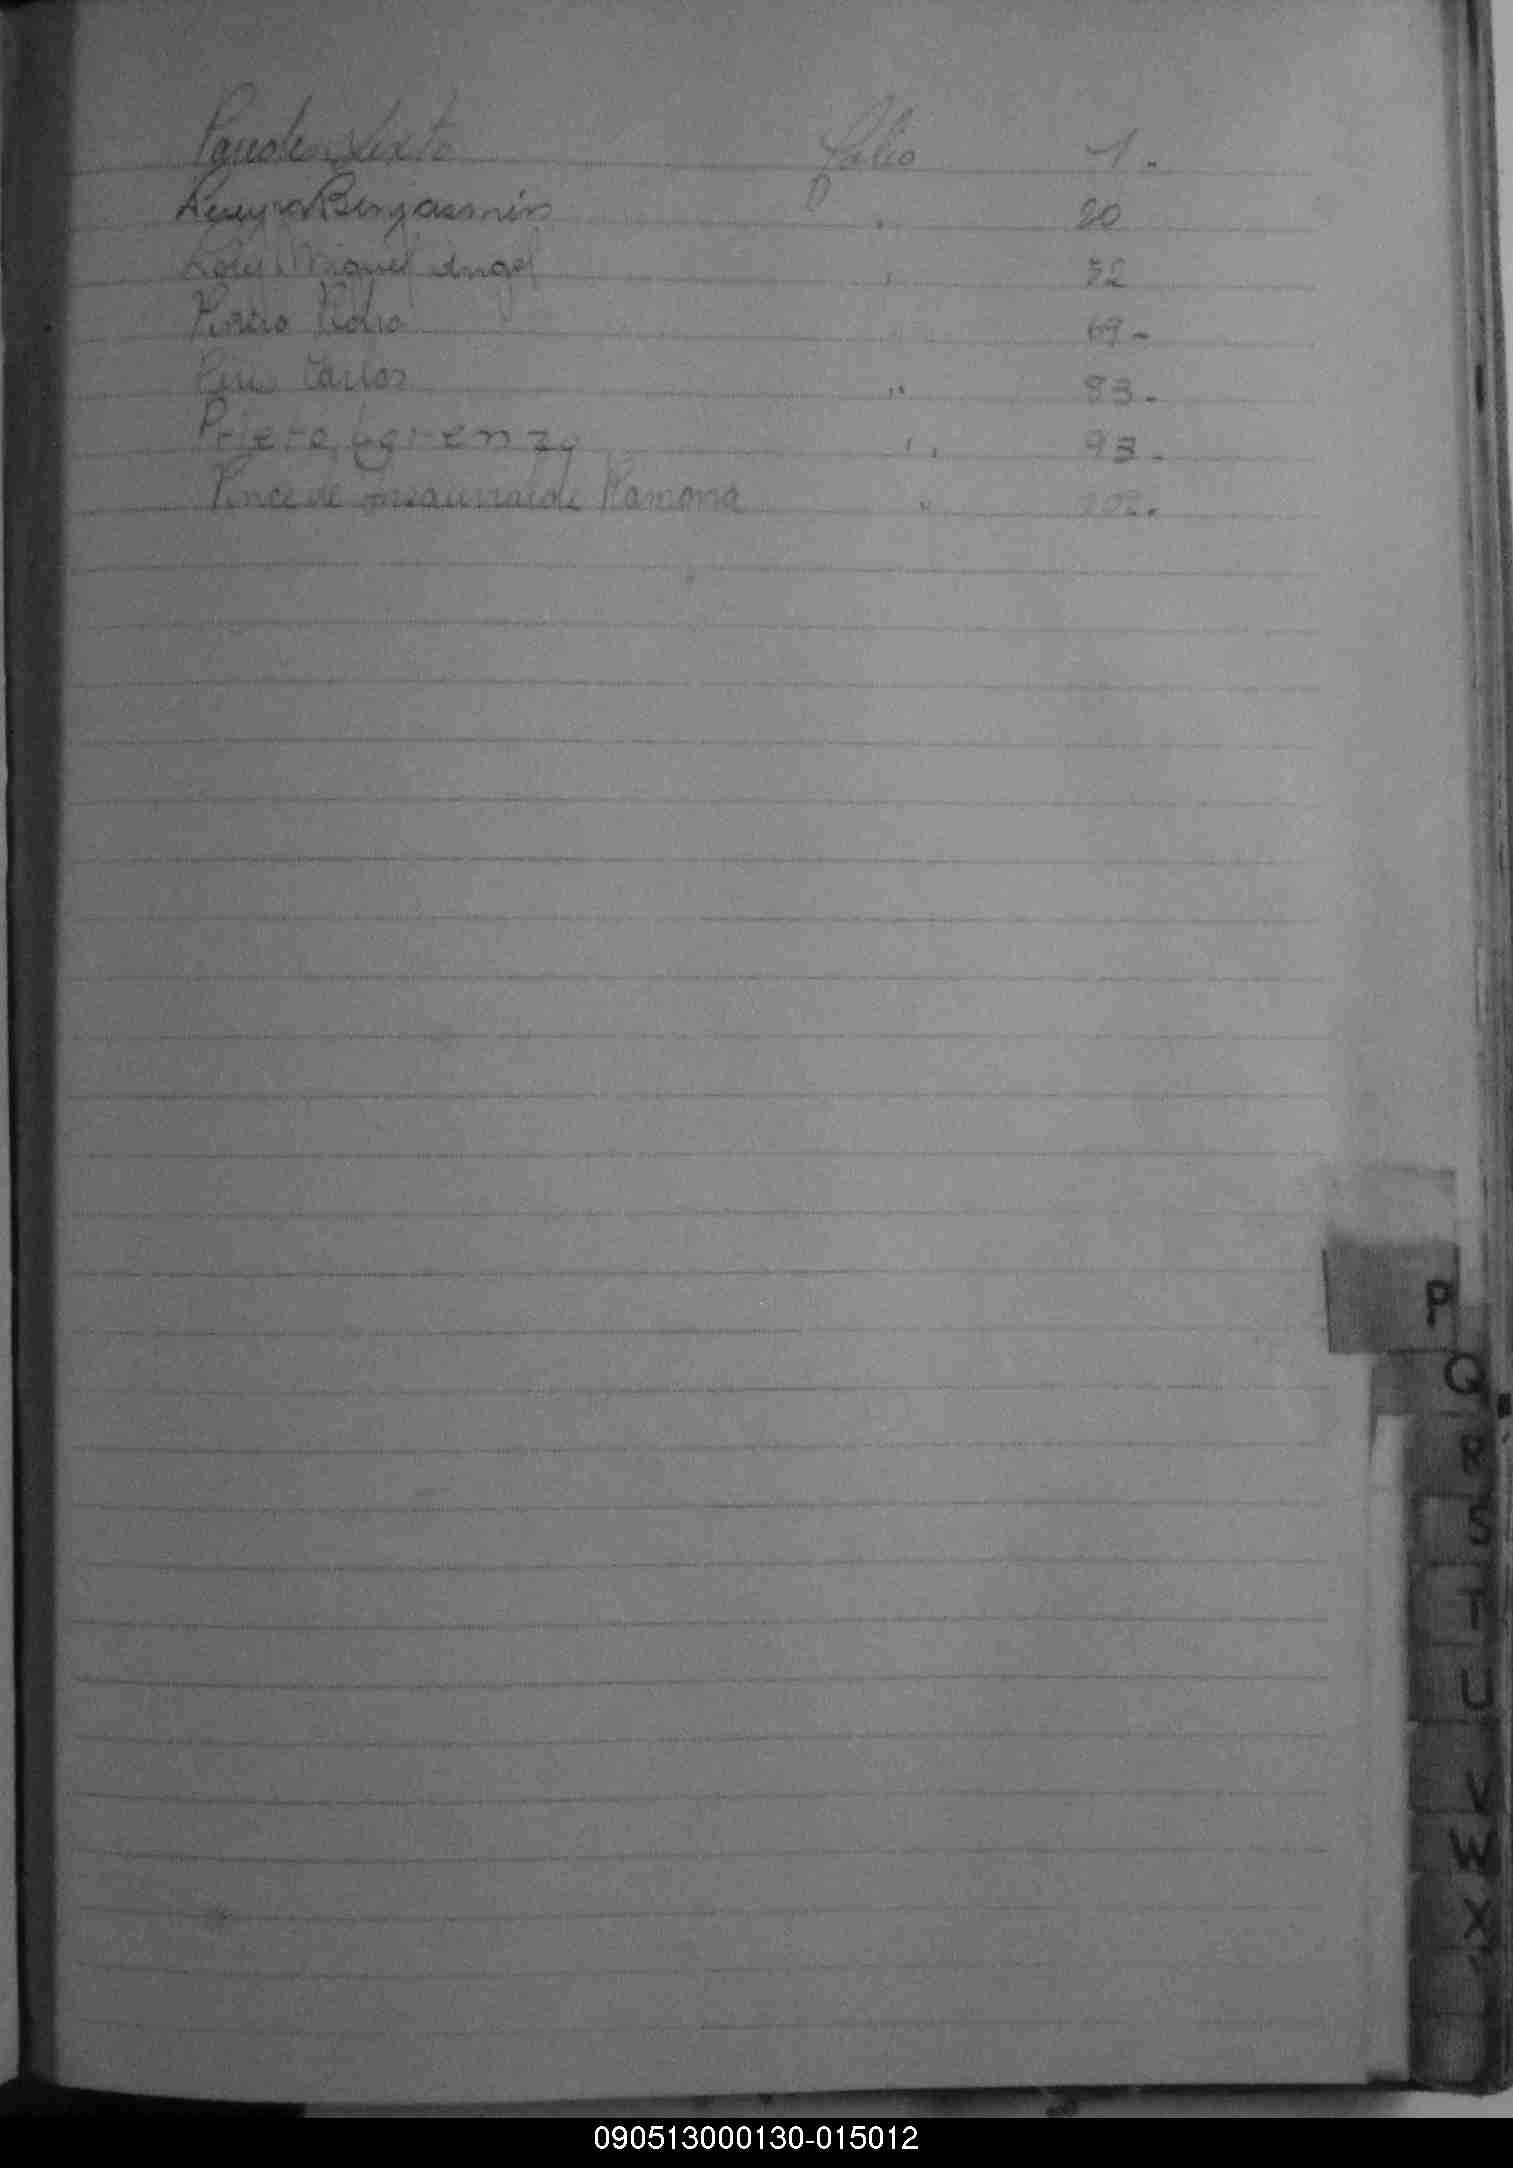 Paredes Sixto folio 1.-
Pereyra Benjasmin " 20
Miguel Angel " 32
69-
Carlos " 83.-
Prieto Lorenzo " 93.-
Ponce de Insaurralde Ramona " 102.
P
Q
R
S
T
U
V
W
X
Y
090513000130-015012